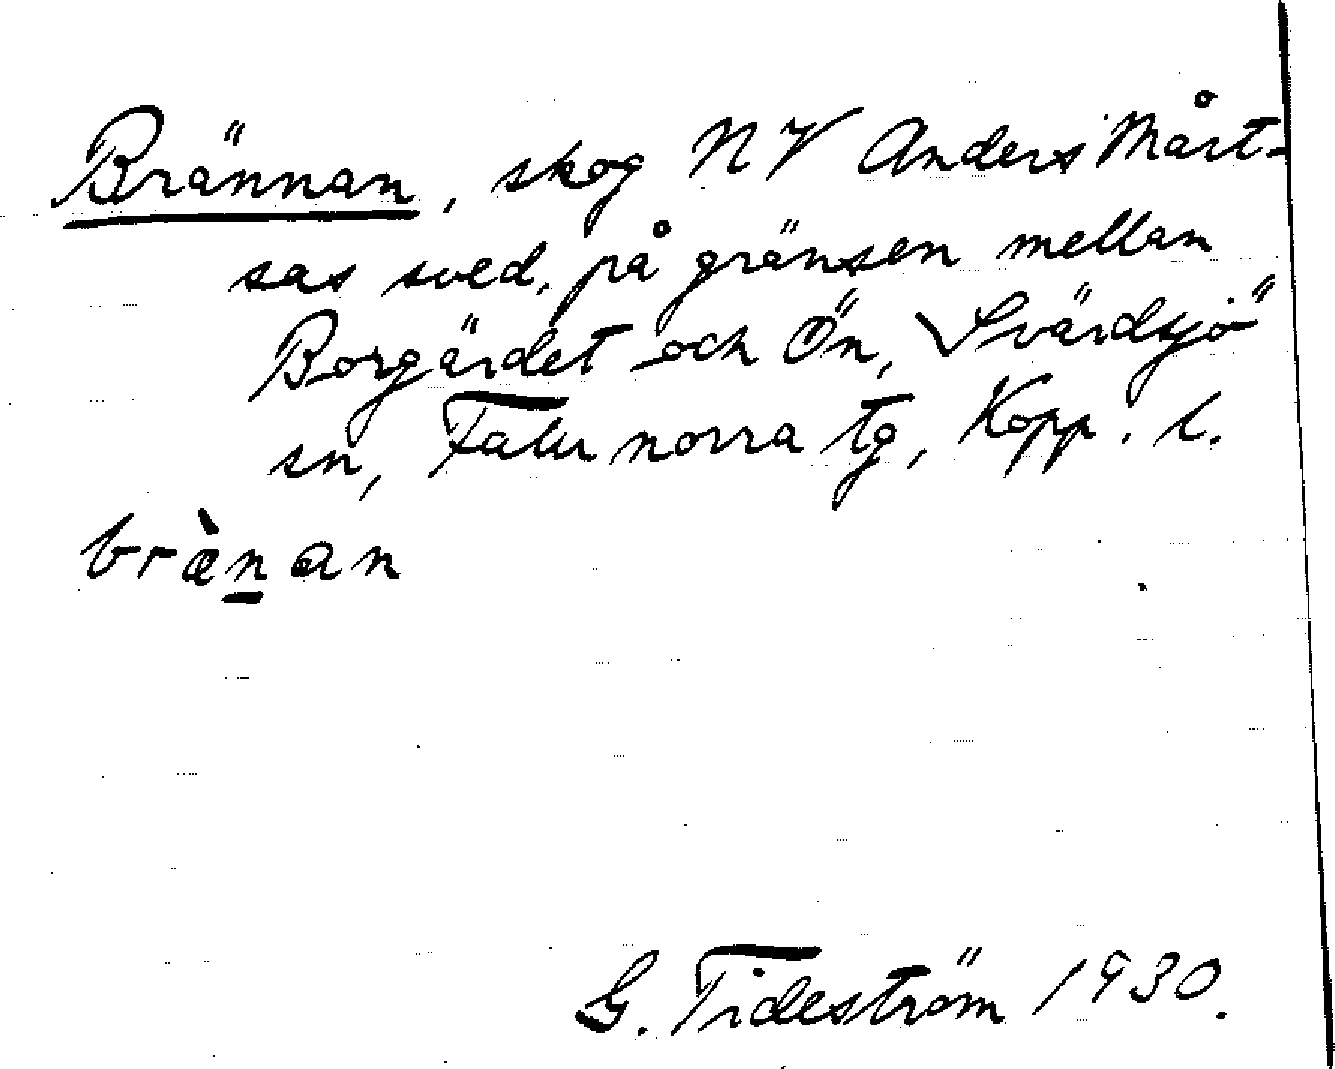 Brännan, skog NV Anders Mårt-
sas sved, på gränsen mellan
Borgärdet och Ön, Svärdsjö
sn, Falu norra tg, Kopp. l.
bræ̀n̲an
G. Tideström 1930.